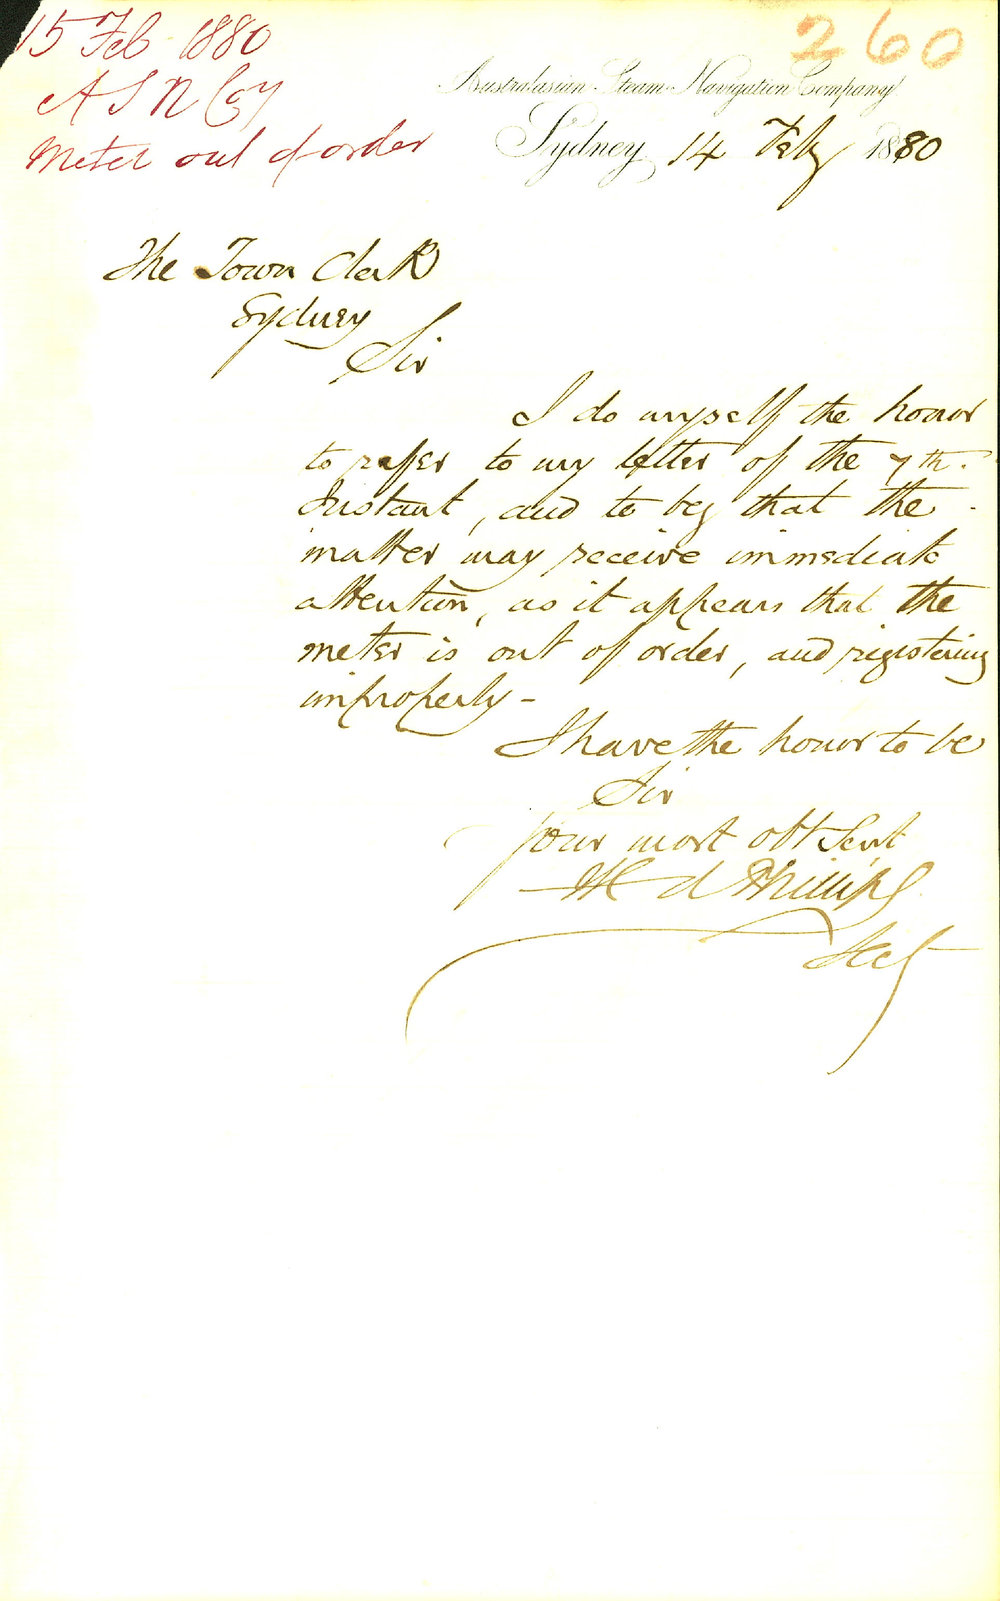 15 Feb 1880
A S N Coy
Meter out of order
260
Australasian Steam Navigation Company
Sydney 14 Feby 1880
The Town Clerk
Sydney
Sir
I do myself the honor
to refer to my letter of the 7th.
Instant, and to beg that the
matter may receive immediate
attention, as it appears that the
meter is out of order, and registering
improperly -
I have the honor to be
Sir
Your most obt Servt
Phillips
Secy